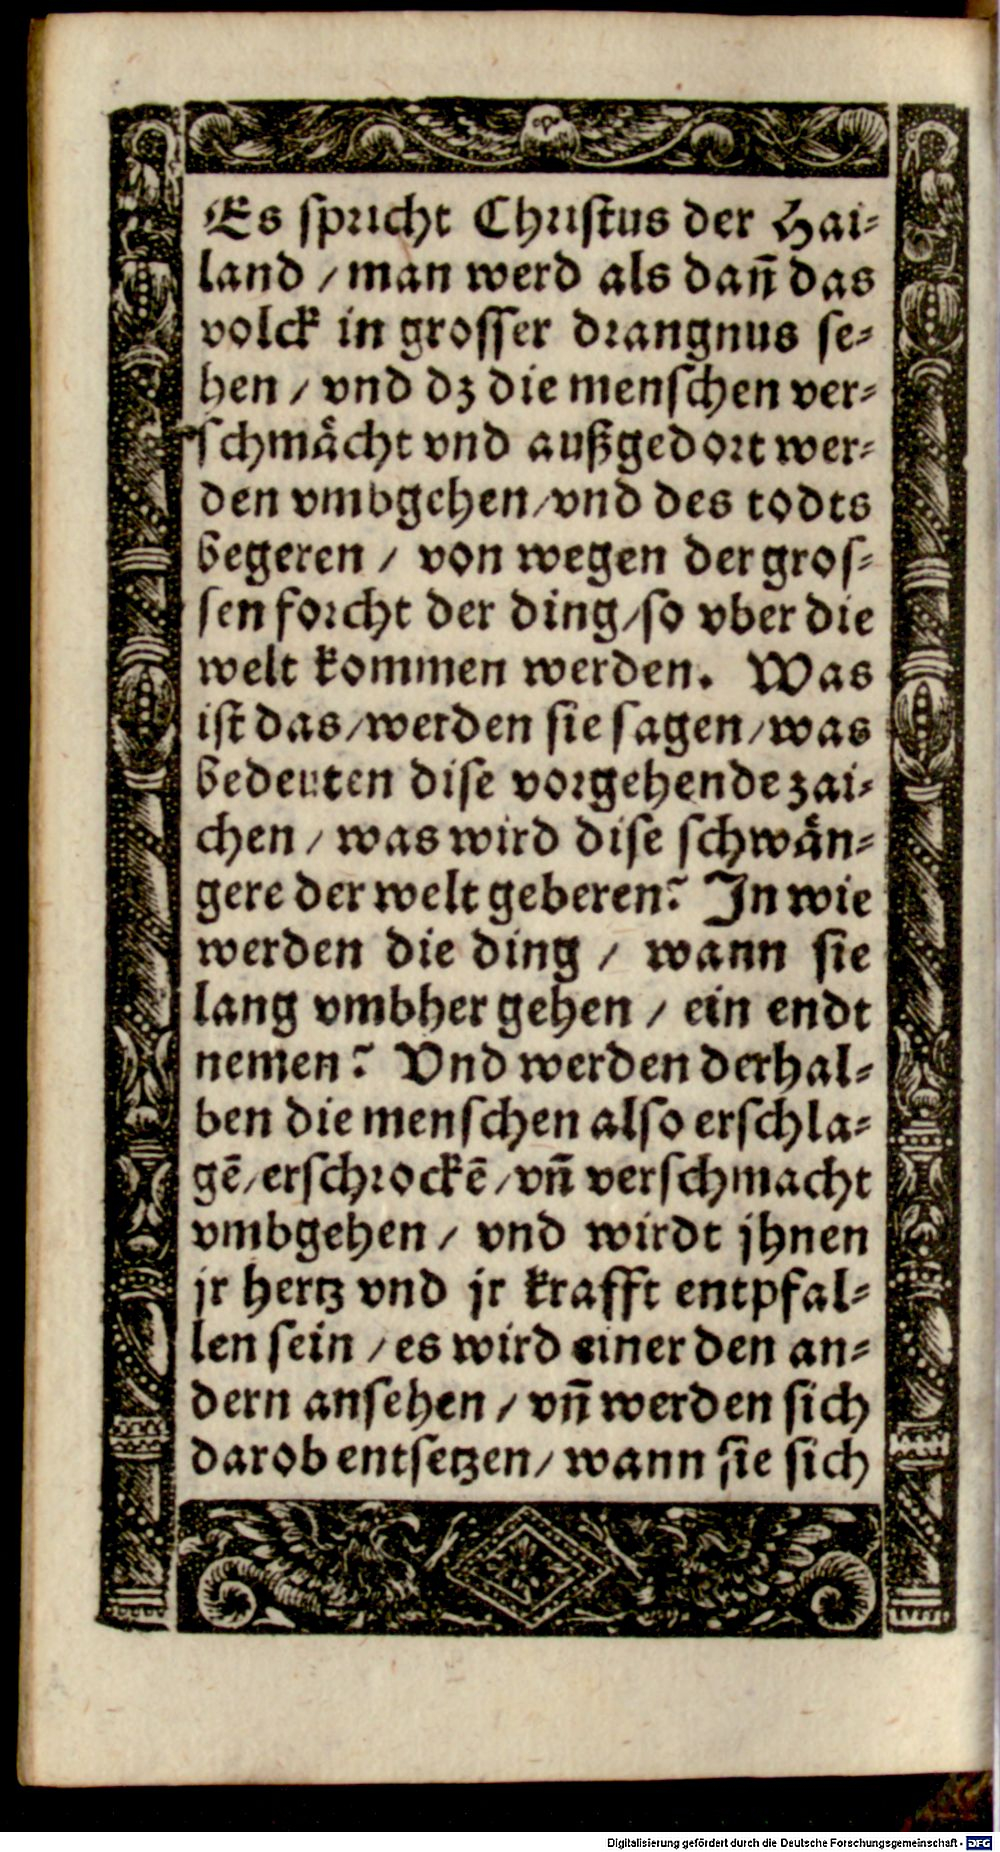 Es spricht Christus der Hai-
land / man werd als dañ das
volck in grosser drangnus se-
hen / vnd dz die menschen ver-
schmåcht vnd außgedort wer-
den vmbgehen / vnd des todts
begeren / von wegen der gros-
sen forcht der ding / so vber die
welt kommen werden. Was
ist das / werden sie sagen / was
bedeuten dise vorgehende zai-
chen / was wird dise schwån-
gere der welt geberen? In wie
werden die ding / wann sie
lang vmbher gehen / ein endt
nemen? Vnd werden derhal-
ben die menschen also erschla-
gē / erschrockē / vñ verschmacht
vmbgehen / vnd wirdt jhnen
jr hertz vnd jr krafft entpfal-
len sein / es wird einer den an-
dern ansehen / vñ werden sich
darob entsetzen / wann sie sich
Digitalisierung gefördert durch die Deutsche Forschungsgemeinschaft - DFG